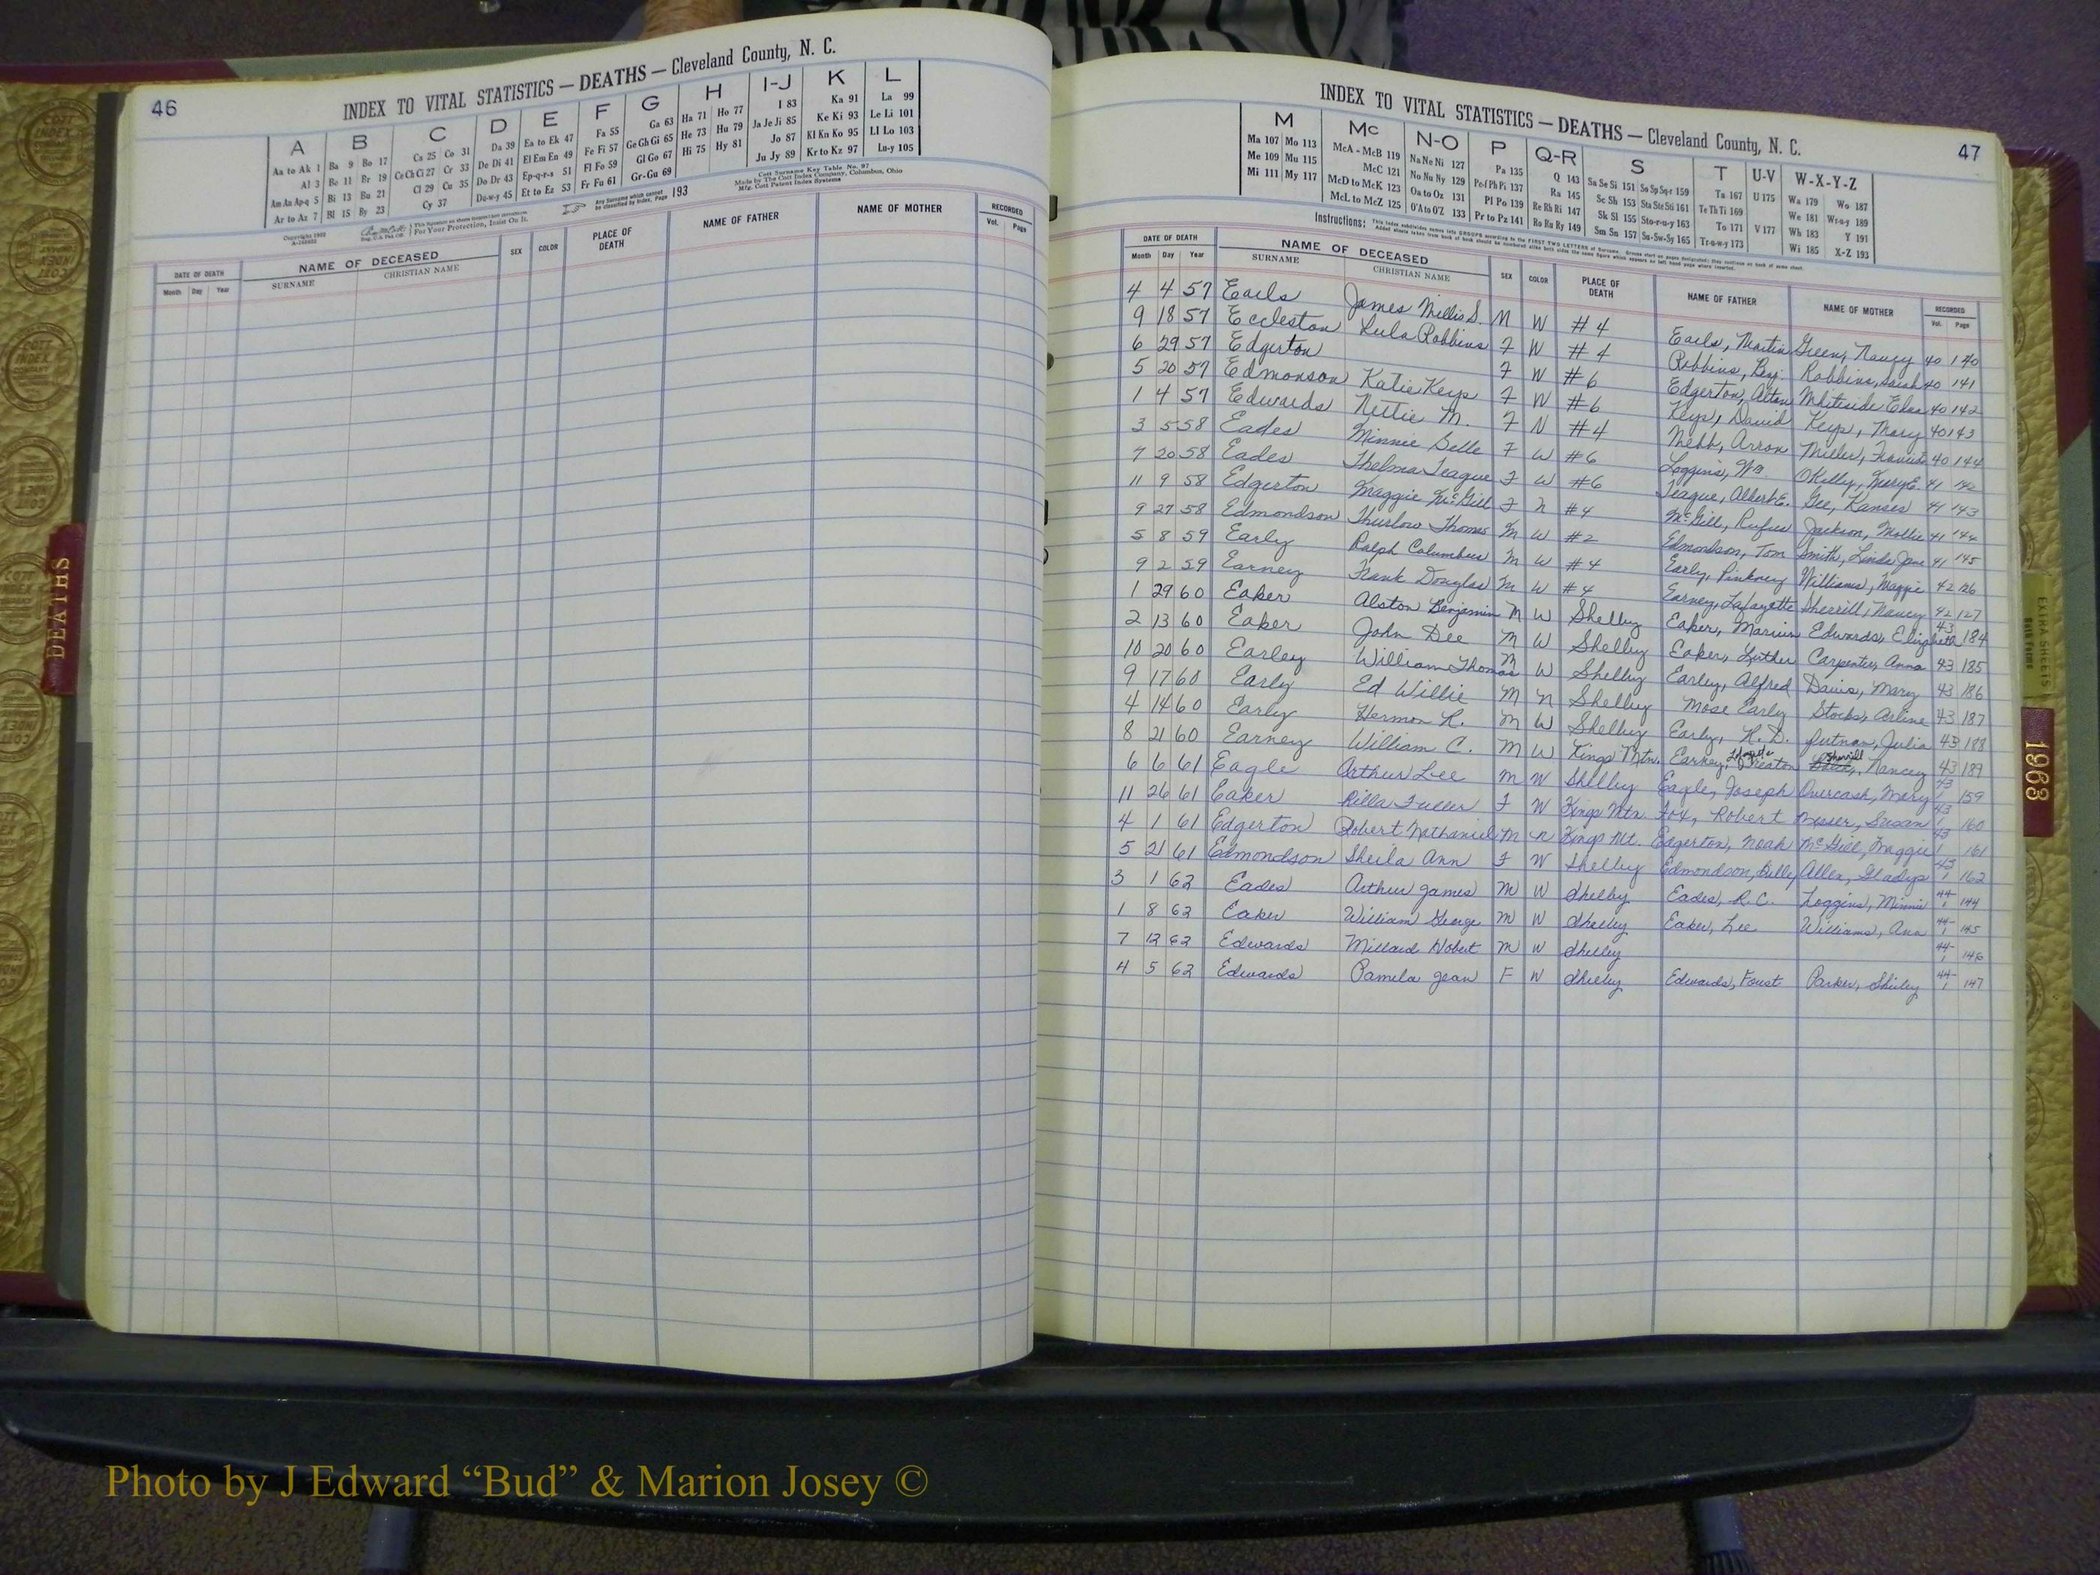 46
INDEX TO VITAL STATISTICS — DEATHS — Cleveland County, N. C.
A B C D E F G H I-J K L
Aa to Ak 1 Ba 9 Bo 17 Ca 25 Co 31 Da 39 Ea to Ek 47 Fa 55 Ga 63 Ha 71 Ho 77 I 83 Ka 91 La 99
Al 3 Be 11 Br 19 Ce Ch Ci 27 Cr 33 De Di 41 El Em En 49 Fe Fi 57 Ge Gh Gi 65 He 73 Hu 79 Ja Je Ji 85 Ke Ki 93 Le Li 101
Am An Ap-q 5 Bi 13 Bu 21 Cl 29 Cu 35 Do Dr 43 Ep-q-r-s 51 Fl Fo 59 Gl Go 67 Hi 75 Hy 81 Jo 87 Kl Kn Ko 95 Ll Lo 103
Ar to Az 7 Bl 15 By 23 Cy 37 Du-w-y 45 Et to Ez 53 Fr Fu 61 Gr-Gu 69 Ju Jy 89 Kr to Kz 97 Lu-y 105
Any Surname which cannot be classified by Index, Page 193
Cott Surname Key Table No. 97
Made by The Cott Index Company, Columbus, Ohio
Mfg. Cott Patent Index Systems
For Your Protection, Insist On It.
DATE OF DEATH NAME OF DECEASED SEX COLOR PLACE OF DEATH NAME OF FATHER NAME OF MOTHER RECORDED
Month Day Year SURNAME CHRISTIAN NAME Vol. Page
INDEX TO VITAL STATISTICS — DEATHS — Cleveland County, N. C.
47
M Mc N-O P Q-R S T U-V W-X-Y-Z
Ma 107 Mo 113 McA - McB 119 Na Ne Ni 127 Pa 135 Q 143 Sa Se Si 151 So Sp Sq-r 159 Ta 167 U 175 Wa 179 Wo 187
Me 109 Mu 115 McC 121 No Nu Ny 129 Pe-f Ph Pi 137 Ra 145 Sc Sh 153 Sta Ste Sti 161 Te Th Ti 169 We 181 Wr-u-y 189
Mi 111 My 117 McD to McK 123 Oa to Oz 131 Pl Po 139 Re Rh Ri 147 Sk Sl 155 Sto-r-u-y 163 To 171 V 177 Wh 183 Y 191
McL to McZ 125 O'A to O'Z 133 Pr to Pz 141 Ro Ru Ry 149 Sm Sn 157 Su-Sw-Sy 165 Tr-u-w-y 173 Wi 185 X-Z 193
Instructions:
DATE OF DEATH NAME OF DECEASED SEX COLOR PLACE OF DEATH NAME OF FATHER NAME OF MOTHER RECORDED
Month Day Year SURNAME CHRISTIAN NAME Vol. Page
4 4 57 Earls James Millis S. M W #4 Earls, Martin Green, Nancy 40 140
9 18 57 Eccleston Lula Robbins F W #4 Robbins, Benj. Robbins, Sarah 40 141
6 29 57 Edgerton F W #6 Edgerton, Alton Whiteside Edna 40 142
5 20 57 Edmonson Katie Keys F W #6 Keys, David Keys, Mary 40 143
1 4 57 Edwards Nettie M. F N #4 Webb, Arron Miller, 40 144
3 5 58 Eades Minnie Belle F W #6 Loggins, Wm. OKelly, Mary E. 41 142
7 20 58 Eades Thelma Teague F W #6 Teague, Albert E. Gee, Kansas 41 143
11 9 58 Edgerton Maggie McGill F N #4 McGill, Rufus Jackson, Mollie 41 144
9 27 58 Edmondson Thurlow Thomas M W #2 Edmondson, Tom Smith, Linda Jane 41 145
5 8 59 Early Ralph Columbus M W #4 Early, Pinkney Williams, Maggie 42 126
9 2 59 Earney Frank Douglas M W #4 Earney, Lafayette Sherrill, Nancy 42 127
1 29 60 Eaker Alston Benjamin M W Shelby Eaker, Marion Edwards, Elizabeth 43 184
2 13 60 Eaker John Dee M W Shelby Eaker, Luther Carpenter, Anna 43 185
10 20 60 Earley William Thomas M W Shelby Earley, Alfred Davis, Mary 43 186
9 17 60 Early Ed Willie M N Shelby Mose Early Stocks, Arline 43 187
4 14 60 Early Hermon R. M W Shelby Early, H. D. Putnam, Julia 43 188
8 21 60 Earney William C. M W Kings Mtn. Earney, Sherrill Nancy 43 189
6 6 61 Eagle Arthur Lee M W Shelby Eagle, Joseph Overcash, Mary 43 1 159
11 26 61 Eaker Rilla Fuller F W Kings Mtn Fox, Robert Messer, Susan 43 1 160
4 1 61 Edgerton Robert Nathaniel M N Kings Mt. Edgerton, Noah McGill, Maggie 43 1 161
5 21 61 Edmondson Sheila Ann F W Shelby Edmondson, Billy Allen, Gladys 43 1 162
3 1 62 Eades Arthur James M W Shelby Eades, R. C. Loggins, Minnie 44-1 144
1 8 62 Eaker William George M W Shelby Eaker, Lee Williams, Ana 44-1 145
7 12 62 Edwards Millard Hobert M W Shelby 44-1 146
4 5 62 Edwards Pamela Jean F W Shelby Edwards, Foust Parker, Shirley 44-1 147
DEATHS
EXTRA SHEETS
1963
Photo by J Edward “Bud” & Marion Josey ©